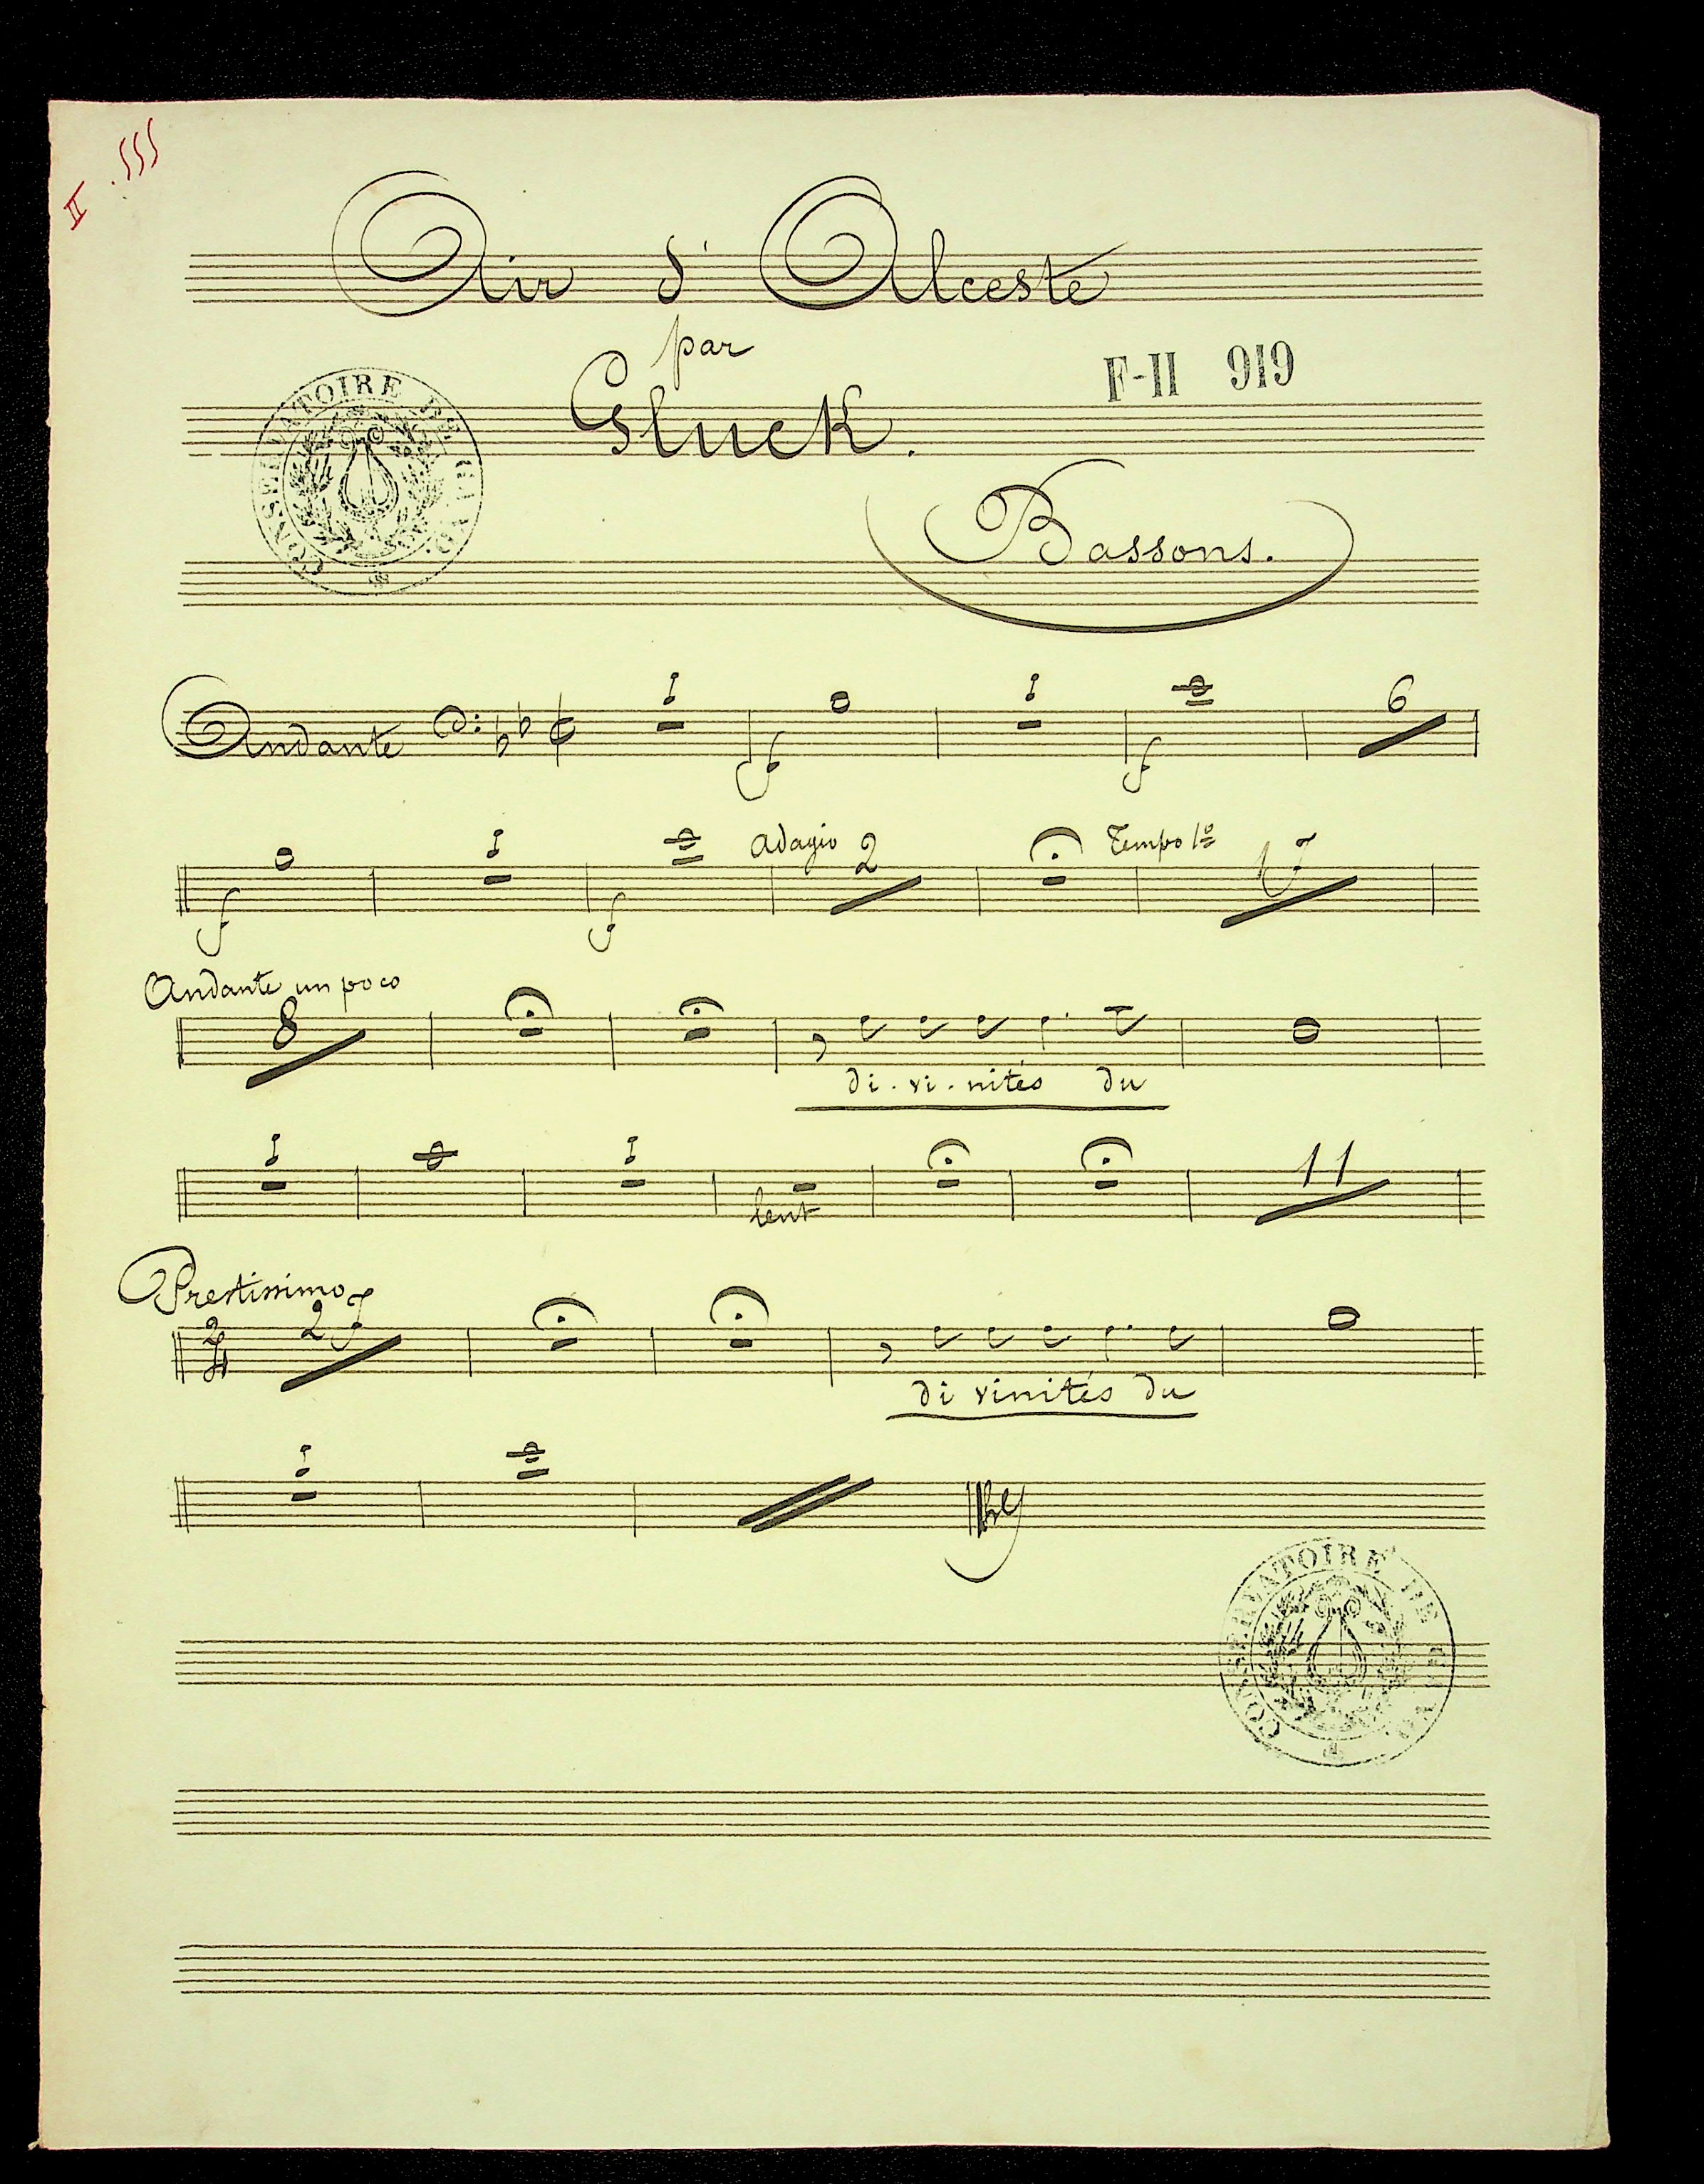 II . 555
Air d' Alceste
par
Gluck.
F-II 919
CONSERVATOIRE DE GAND.
Bassons.
Andante 1 f 1 f 6
f 1 f Adagio 2 Tempo 1º 17
Andante un poco
8
di-vi-nités du
1 1 lent 11
Prestissimo
2 4 27
di vinités du
1
CONSERVATOIRE DE GAND.